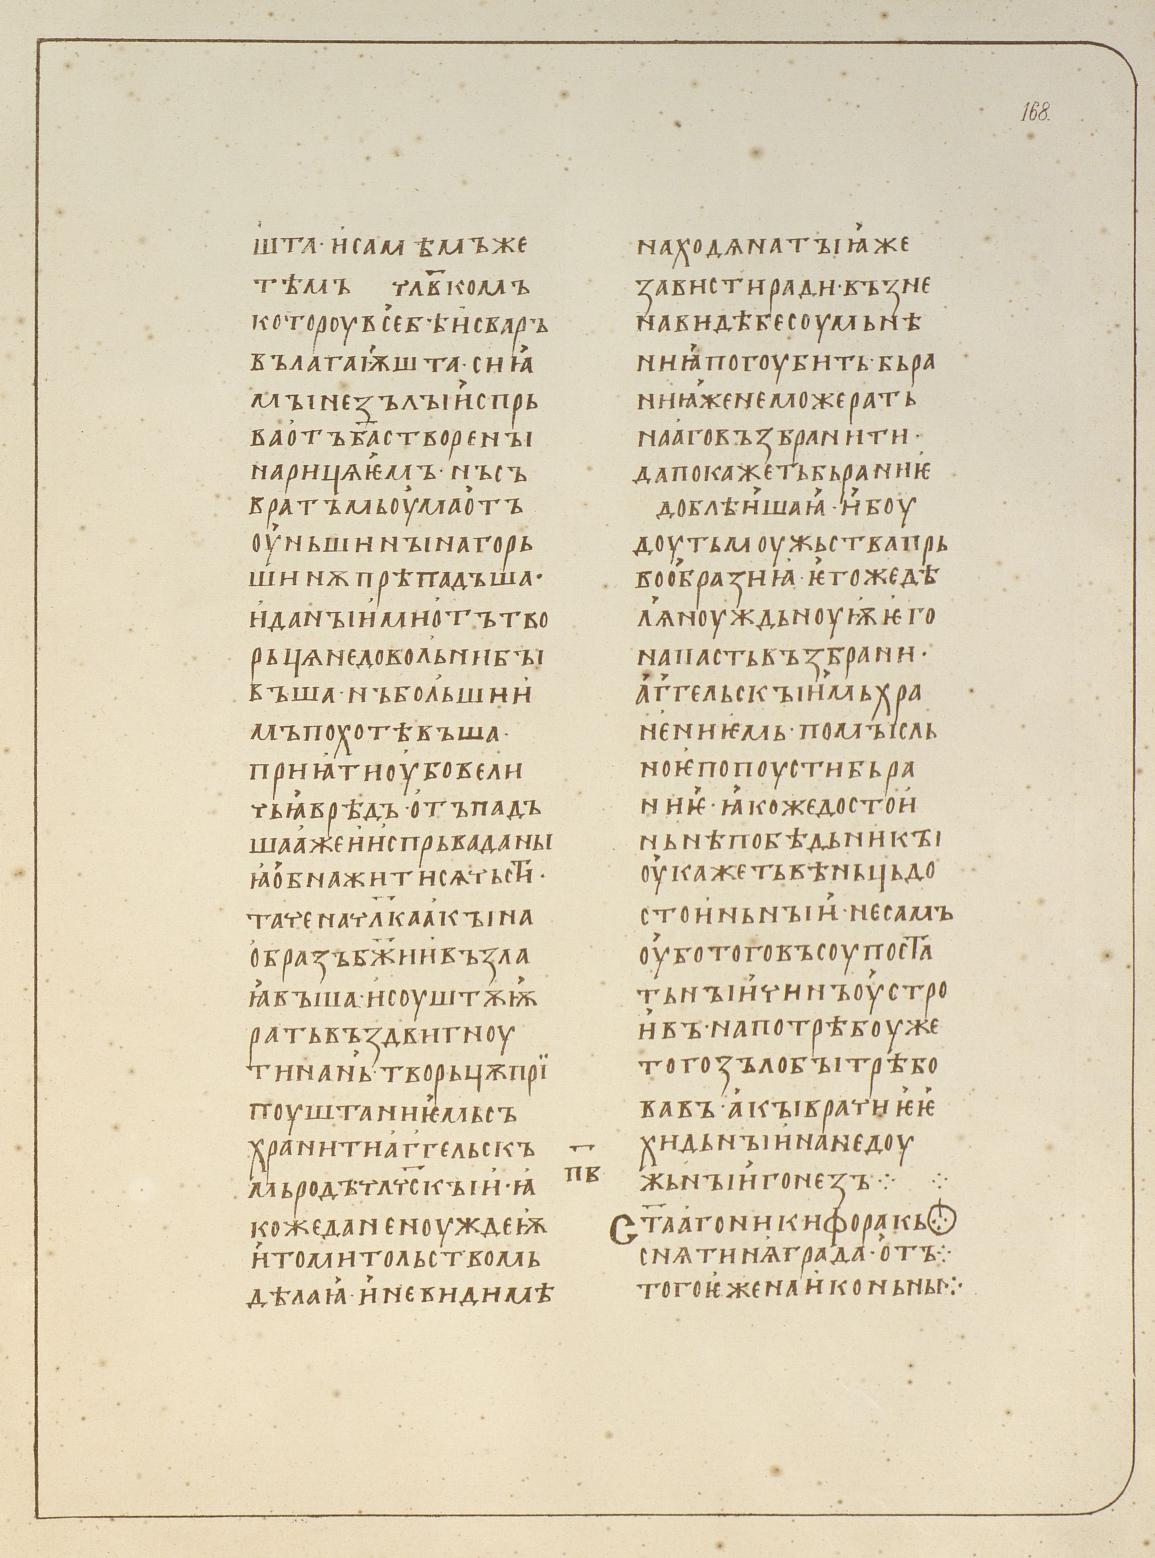 168.
шта· и҆сам ѣмъже
тѣмъ члв҃комъ
котороу въсеб·ѣ и҆ сваръ
вълагаѭшта· си ꙗ҆
мы не ꙁълы и҆спрь
ва о҆тъ б҃а створены
нарицѧѥ҆мъ· нъ съ
вратъмь оу҆ма о҆тъ
оу҆ньшинъı на горь
шинѫ прѣпадъша·
и҆ данъıи҆мн о҆тъ тво
рьцѧ не довольни бъı
въша· нъ больши и҆
мъ похотѣвъша·
приꙗ҆ти оу҆бо вели
чьꙗ҆ врѣдъ· о҆тъпад
ша а҆же и҆ и҆спрьва даны
ꙗ҆ о҆бнажити сѧ чьсти·
таче на чл҃ка а҆кы на
о҆браꙁъ бж҃ии въꙁла
ꙗ҆въша· и҆ соуштѫѭ
рать въꙁдвигноу
ти на нь· творьцѫ прї
поуштаниѥ҆мь съ
хранити а҆г҆гельскъ
мь родѣ чл҃чскъıи҆· ꙗ҆
коже да не ноуждеѭ҆
и҆ томительствомь
дѣлаꙗ҆· и҆ невидимѣ
находѧ на тъı ꙗ҆же
ꙁависти ради· въꙁне
навидѣ бес оумьнѣ
ниꙗ҆ погоубить· бьра
ниꙗ҆же не може рать
на а҆го въꙁбранити·
да покажеть бьраниѥ
доблѣи҆шаꙗ҆· и҆ боу
доуть моужьства прь
воо҆браꙁниꙗ҆· ѥ҆гоже дѣ
лꙗ ноуждьноуѭ ѥ҆го
напасть въꙁбрани·
а҆г҆гельскъıи҆мь хра
нениѥмь· помъıсль
ноѥ҆ попоусти бьра
ниѥ҆· ꙗ҆коже достои҆
ньнѣ побѣдьникъı
оу҆кажеть вѣньць до
стои҆ньнъıи҆· не самъ
оу҆бо того въ соупоста
тьнъıи҆ чинъ оу҆стро
и҆въ· на потрѣбоу же
того ꙁълобъı трѣбо
вавъ· а҆къı врачи ѥ҆ѥ҆
хидьнъı и҆на недоу
жьнъıи҆ гонеꙁъ ⁘ ⁘
п҃в
Ст҃аа҆го никифора къ
снѧтинѧ града· о҆тъ⁘
того ѥ҆же на и҆коньны⁘